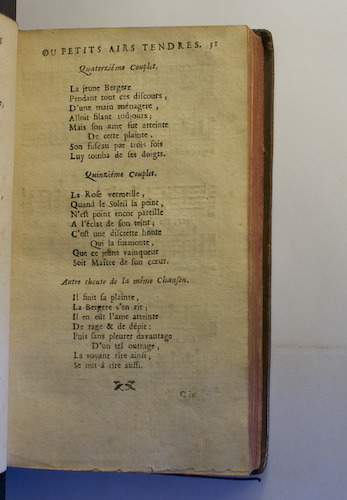 OU PETITS AIRS TENDRES. 51
Quatorziéme Couplet.
La jeune Bergere
Pendant tout ces discours,
D'une main ménagere,
Alloit filant toûjours;
Mais son ame fut atteinte
De cette plainte,
Son fuseau par trois fois
Luy tomba de ses doigts.
Quinziéme Couplet.
La Rose vermeille,
Quand le Soleil la peint,
N'est point encor pareille
A l'éclat de son teint;
C'est une discrette honte
Qui la surmonte,
Que ce jeune vainqueur
Soit Maître de son cœur.
Autre cheute de la même Chanson.
Il finit sa plainte,
La Bergere s'en rit;
Il en eût l'ame atteinte
De rage & de dépit:
Puis sans pleurer davantage
D'un tel outrage,
La voyant rire ainsi,
Se mit à rire aussi.
C iv